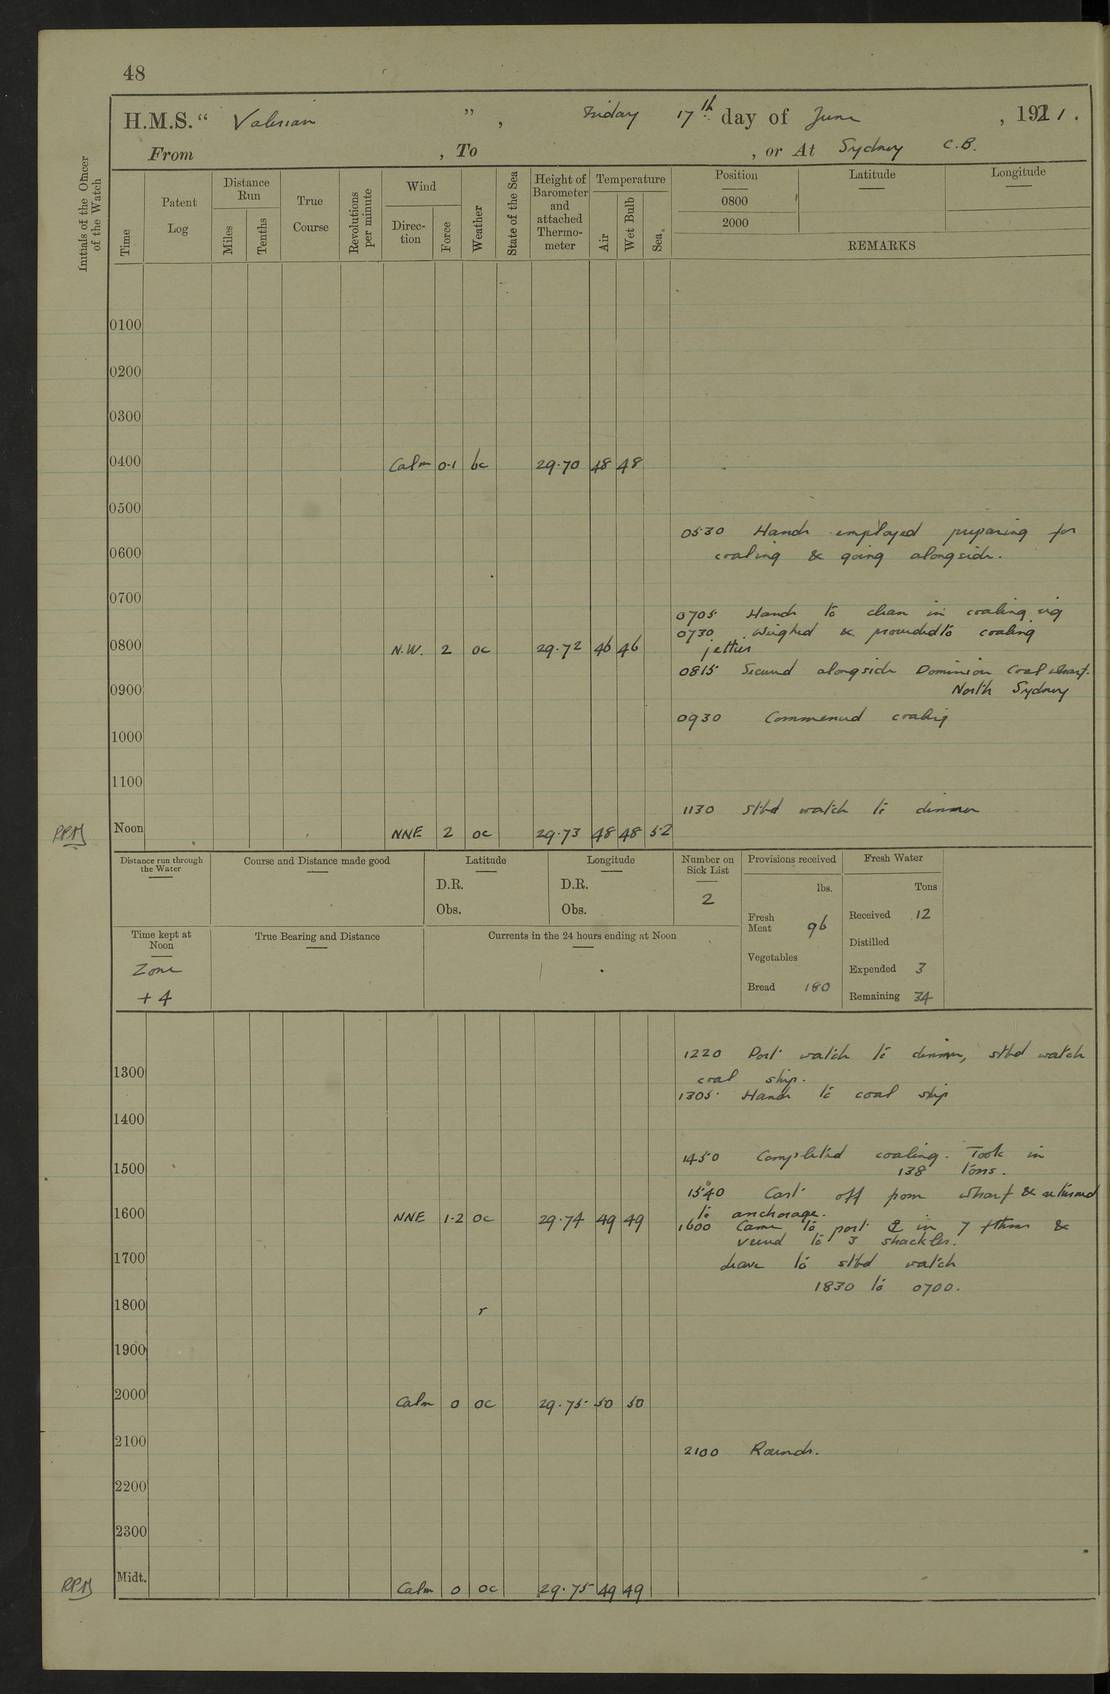 48
H.M.S. “ Valerian ” , Friday 17th day of June , 1921.
From , To , or At Sydney C.B.
Initials of the Officer of the Watch
Time
Patent Log
Distance Run
Miles
Tenths
True Course
Revolutions per minute
Wind
Direc-tion
Force
Weather
State of the Sea
Height of Barometer and attached Thermo-meter
Temperature
Air
Wet Bulb
Sea
Position
0800
2000
Latitude
Longitude
REMARKS
0100
0200
0300
0400 Calm 0-1 bc 29.70 48 48
0500
0530 Hands employed preparing for
0600 coaling & going alongside.
0700
0705 Hands to clean in coaling rig
0730 Weighed & proceeded to coaling
0800 N.W. 2 oc 29.72 46 46 jetties
0815 Secured alongside Dominion Coal Wharf.
0900 North Sydney
0930 Commenced coaling
1000
1100
1130 Stbd watch to dinner
RPM Noon NNE 2 oc 29.73 48 48 52
Distance run through the Water
Course and Distance made good
Latitude
D.R.
Obs.
Longitude
D.R.
Obs.
Number on Sick List
2
Provisions received
lbs.
Fresh Meat 96
Vegetables
Bread 180
Fresh Water
Tons
Received 12
Distilled
Expended 3
Remaining 34
Time kept at Noon
Zone
+ 4
True Bearing and Distance
Currents in the 24 hours ending at Noon
1220 Port watch to dinner, stbd watch
1300 coal ship.
1305 Hands to coal ship
1400
1450 Completed coaling. Took in
1500 138 tons.
1540 Cast off from wharf & returned
to anchorage.
1600 NNE 1-2 oc 29.74 49 49
1600 Came to port ⚓ in 7 fthms &
veered to 3 shackles.
1700 Leave to stbd watch
1830 to 0700.
1800 r
1900
2000 Calm 0 oc 29.75 50 50
2100 2100 Rounds.
2200
2300
RPM Midt. Calm 0 oc 29.75 49 49